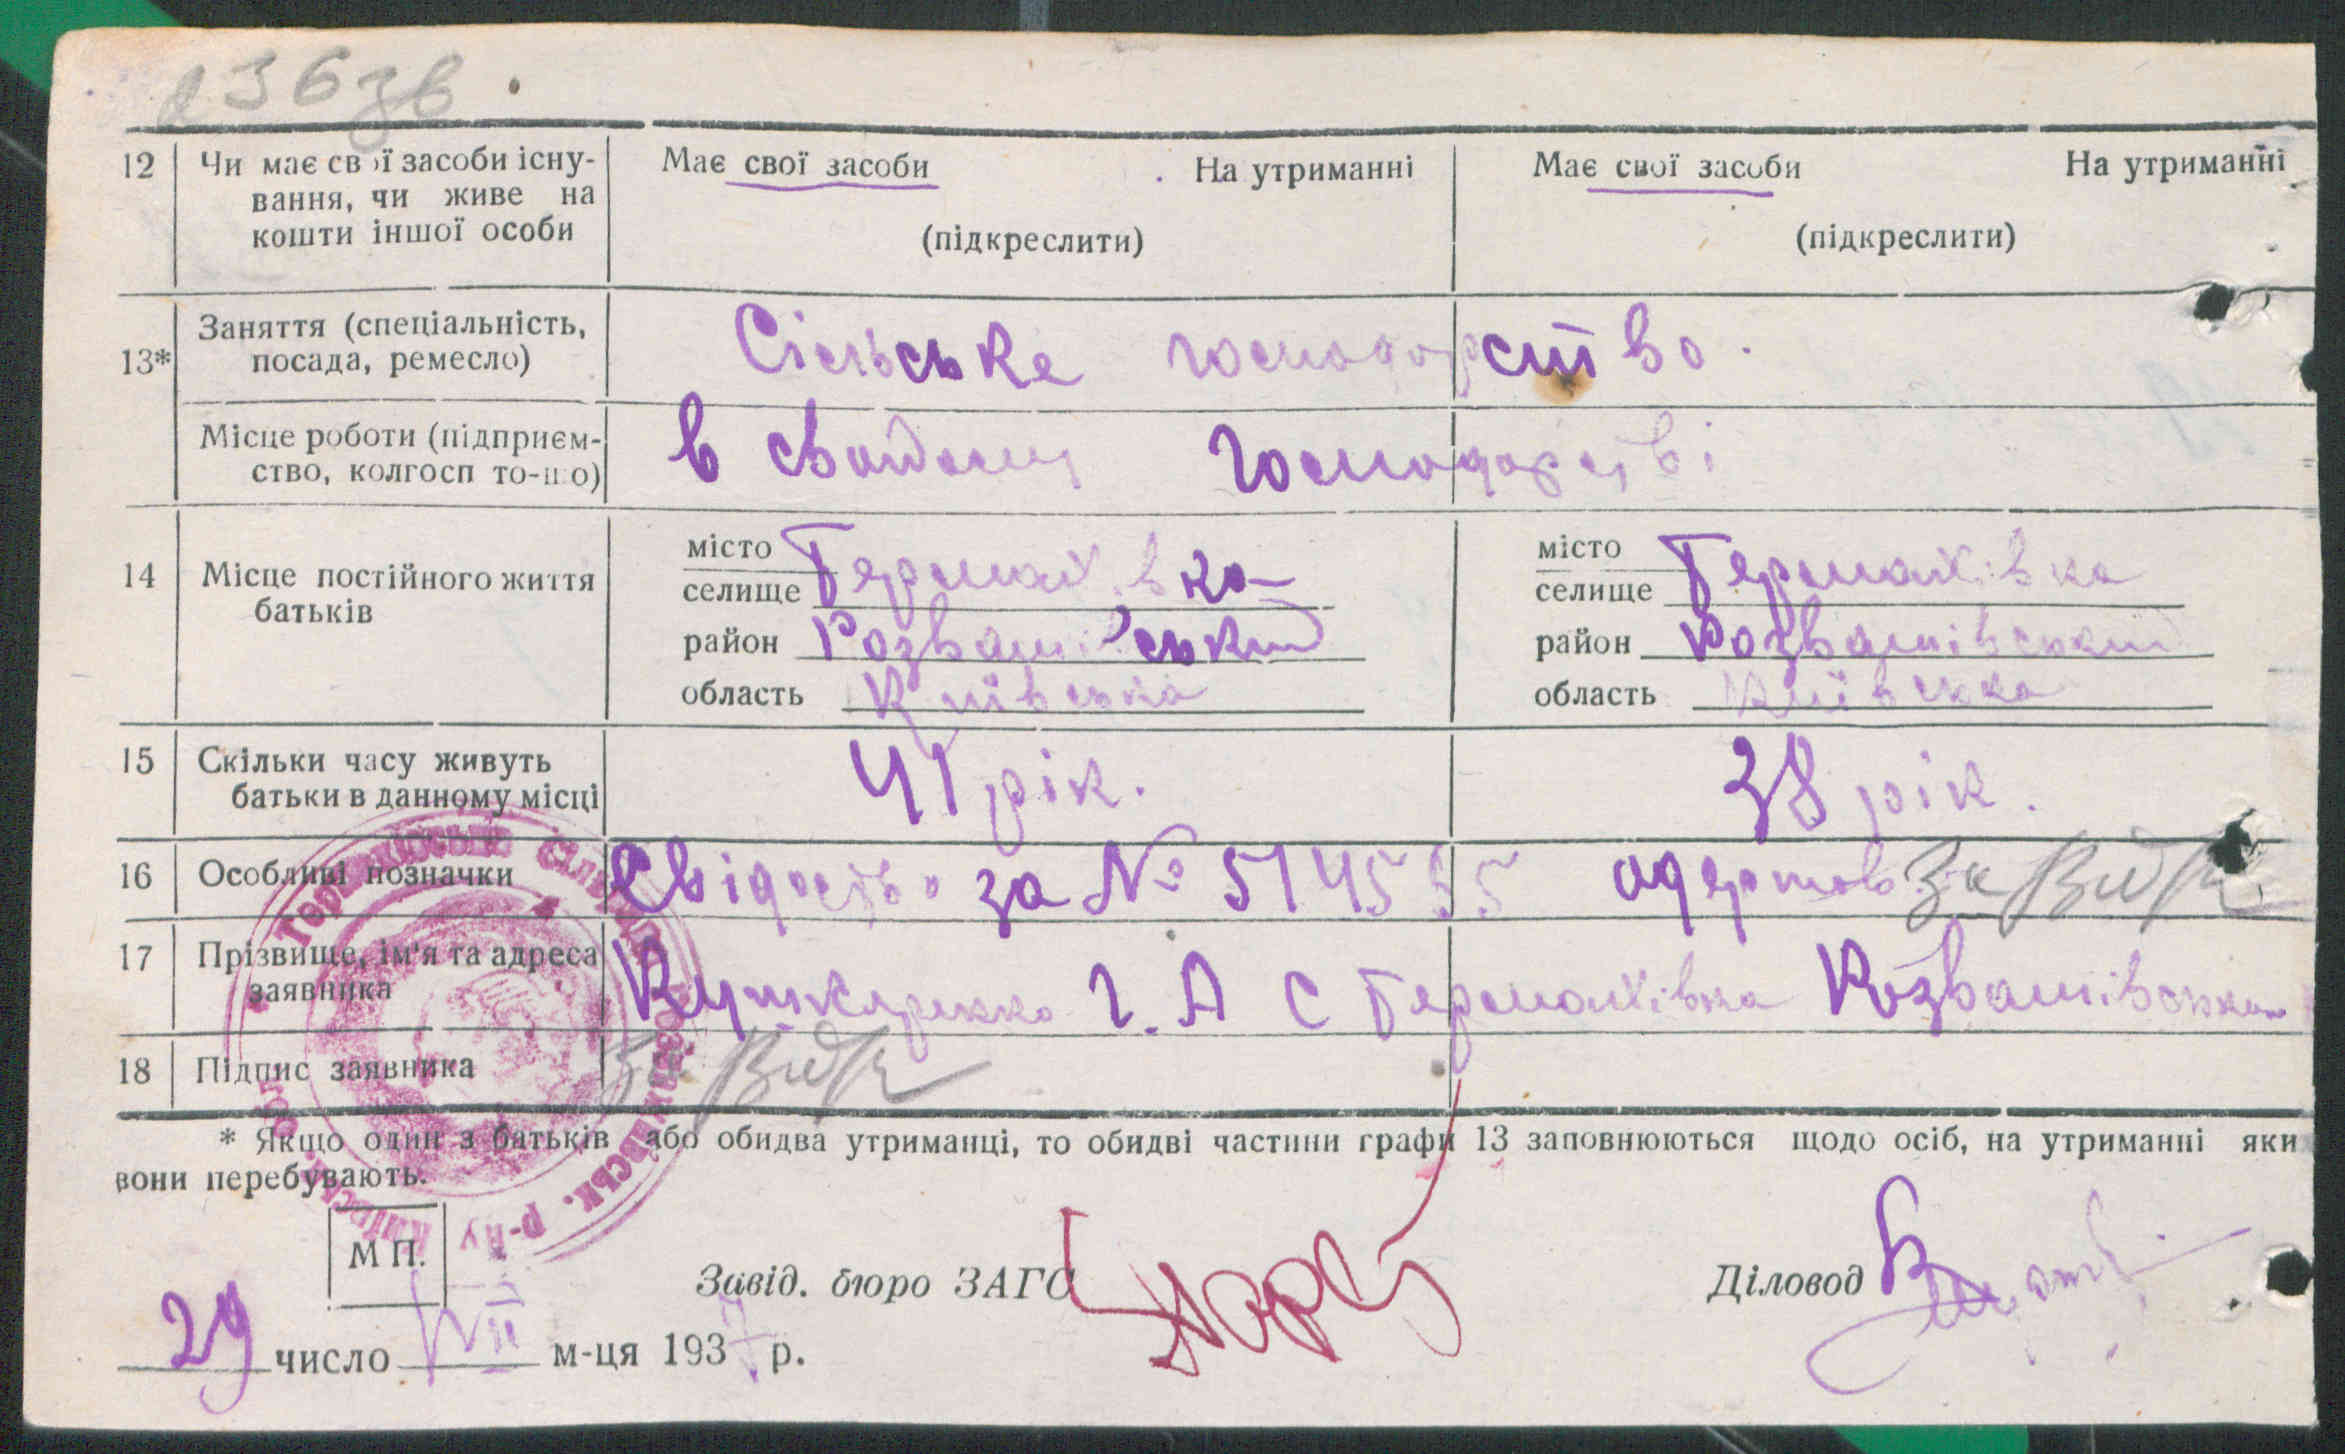 236зв
12 Чи має свої засоби існу-
вання, чи живе на
кошти іншої особи
Має свої засоби На утриманні
(підкреслити)
Має свої засоби На утриманні
(підкреслити)
13* Заняття (спеціальність,
посада, ремесло)
Сільське господарство.
Місце роботи (підприєм-
ство, колгосп то-що)
в своєму господарстві
14 Місце постійного життя
батьків
місто
селище Термахівка
район Розважівський
область Київська
місто
селище Термахівка
район Розважівський
область Київська
15 Скільки часу живуть
батьки в данному місці
41 рік.
38 рік.
16 Особливі позначки
Свідоство за № 514555 одержав
17 Прізвище, ім'я та адреса
заявника
Г. А с Термахівка Розважівськи
18 Підпис заявника
* Якщо один з батьків або обидва утриманці, то обидві частини графи 13 заповнюються щодо осіб, на утриманні яки
вони перебувають.
М П.
Завід. бюро ЗАГС
Діловод
29 число VII м-ця 1937 р.